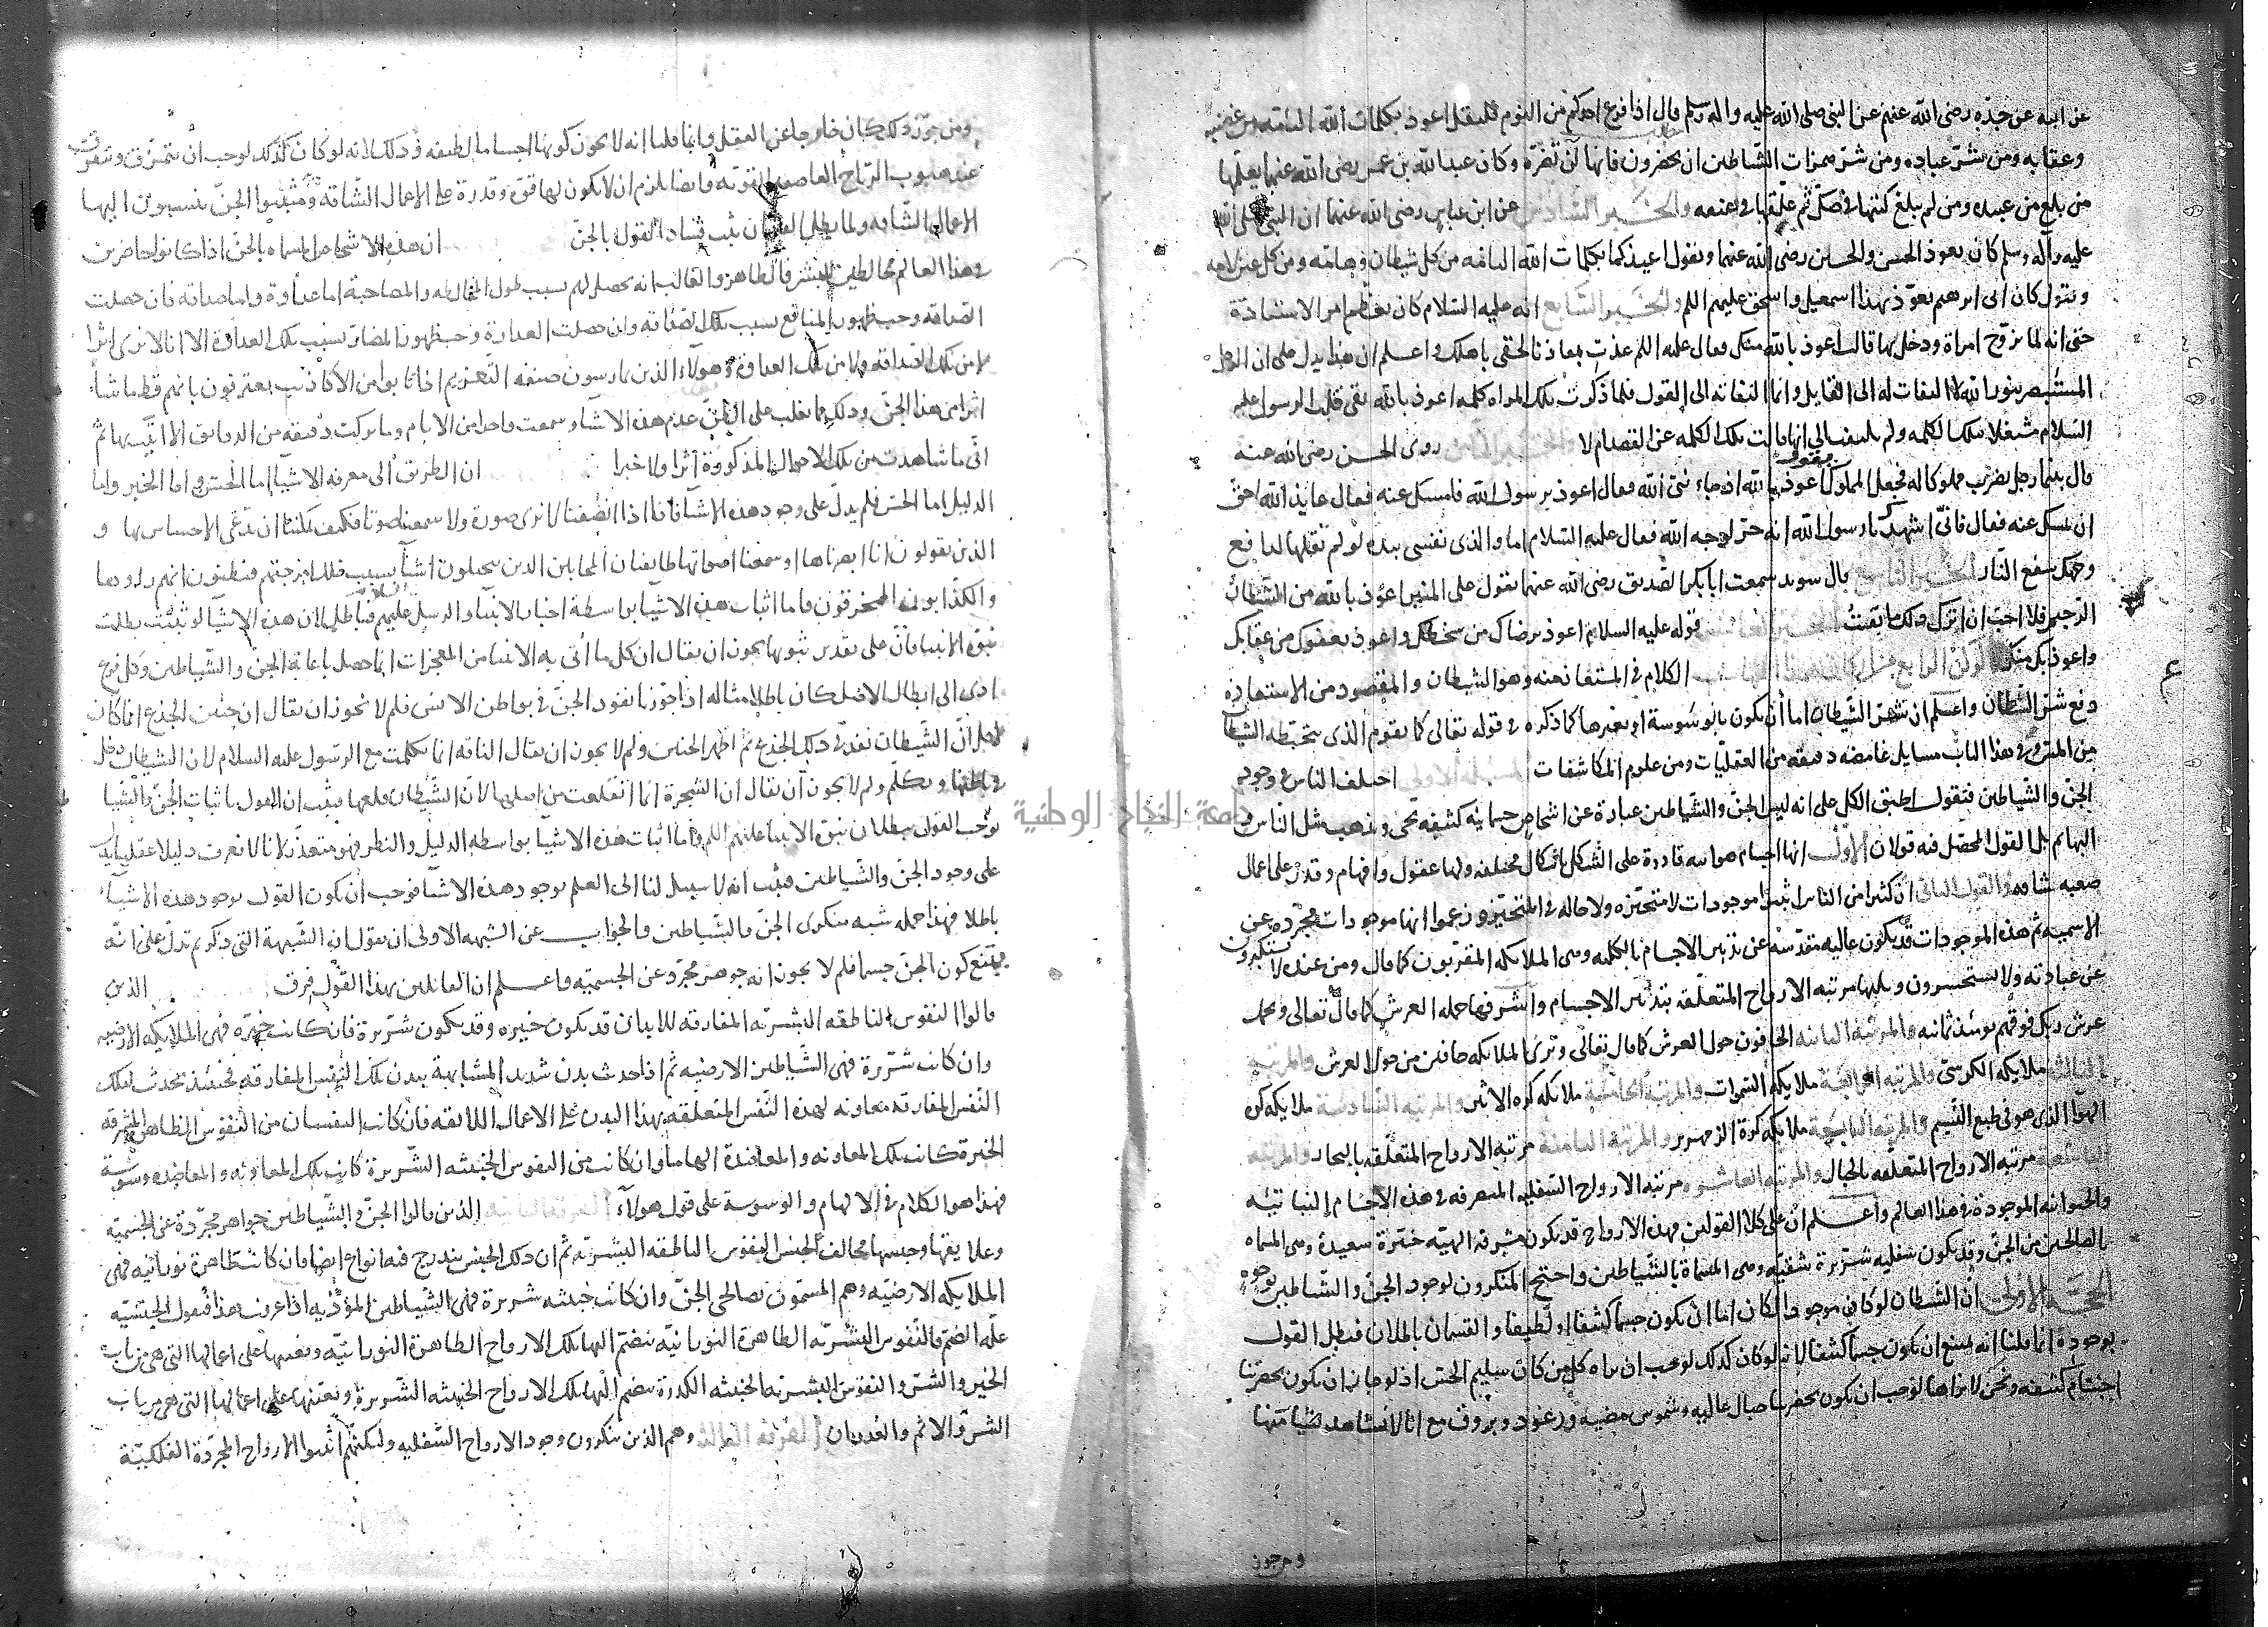 عن ابيه عن جده رضي الله عنهم عن النبي صلى الله عليه واله وسلم قال اذا فزع احدكم من النوم فليقل اعوذ بكلمات الله التامه من غضبه
وعقابه ومن شر عباده ومن شر همزات الشياطين ان يحضرون فانها لن تضره وكان عبد الله بن عمر رضي الله عنهما يعلمها
من بلغ من عبيده ومن لم يبلغ كتبها في صك ثم علقها في عنقه والخبر السادس عن ابن عباس رضي الله عنهما ان النبي صلى الله
عليه وآله وسلم كان يعوذ الحسن والحسين رضي الله عنهما ويقول اعيذكما بكلمات الله التامه من كل شيطان وهامه ومن كل عين لامه
ويقول كان ابي ابرهيم يعوذ بهذا اسمعيل واسحق عليهم اللم والخبر السابع انه عليه السلام كان يعظم امر الاستعاذة
حتى انه لما تزوج امراة ودخل بها قالت اعوذ بالله منك فقال عليه اللم عذت بمعاذ فالحقي باهلك واعلم ان هذا يدل على ان الرجل
المستبصر بنور الله لا التفات له الى القايل وانما التفاته الى القول فلما ذكرت تلك المراه كلمه اعوذ بالله بقي قلب الرسول عليه
السلام مشتغلا بتلك الكلمه ولم يلتفت الى انها قالت تلك الكلمه عن قصد ام لا الخبر الثامن روى الحسن رضي الله عنه
قال بينما رجل يضرب مملوكا له فجعل المملوك يقول اعوذ بالله اذ جاء نبي الله فقال اعوذ برسول الله فامسك عنه فقال عايذ الله احق
ان يمسك عنه فقال فاني اشهدك يا رسول الله انه حر لوجه الله فقال عليه السلام اما والذي نفسي بيده لو لم تقلها لدافع
وجهك سفع النار الخبر التاسع قال سويد سمعت ابا بكر الصديق رضي الله عنهما يقول على المنبر اعوذ بالله من الشيطان
الرجيم فلا احب ان اترك ذلك ما بقيت الخبر العاشر قوله عليه السلام اعوذ برضاك من سخطك واعوذ بعفوك من عقابك
واعوذ بك منك الركن الرابع من اركان هذا الباب الكلام في المستعاذ منه وهو الشيطان والمقصود من الاستعاذة
دفع شر الشيطان واعلم ان شر الشيطان اما أن يكون بالوسوسة او بغيرها كما ذكره في قوله تعالى كما يقوم الذي يتخبطه الشيطان
من المس وفي هذا الباب مسايل غامضه دقيقه من العقليات ومن علوم المكاشفات المسئله الاولى اختلف الناس في وجود
الجن والشياطين فنقول اطبق الكل على انه ليس الجن والشياطين عبارة عن اشخاص جسمانيه كثيفه تجي وتذهب مثل الناس و
البهائم بل القول المحصل فيه قولان الاول انها اجسام هوائيه قادرة على التشكل باشكال مختلفه ولها عقول وافهام وقدرة على اعمال
صعبه شاقه والقول الثاني ان كثيرا من الناس اثبتوا موجودات لا متحيزه ولا حاله في المتحيز وزعموا انها موجودات مجرده عن
الاسميه ثم هذه الموجودات قد يكون عاليه مقدسه عن تدبير الاجسام بالكليه وهي الملائكه المقربون كما قال ومن عنده لا يستكبرون
عن عبادته ولا يستحسرون ويليها مرتبه الارواح المتعلقه بتدبير الاجسام واشرفها حمله العرش كما قال تعالى ويحمل
عرش ربك فوقهم يومئذ ثمانيه والمرتبه الثانيه الحافون حول العرش كما قال تعالى وترى الملائكه حافين من حول العرش والمرتبه
الثالثه ملائكه الكرسي والمرتبه الرابعه ملائكه السموات والمرتبه الخامسه ملائكه كره الاثير والمرتبه السادسه ملائكه كره
الهوا الذي هو في طبع النسيم والمرتبه السابعة ملائكه كرة الزمهرير والمرتبه الثامنه مرتبه الارواح المتعلقه بالبحار والمرتبه
التاسعه مرتبه الارواح المتعلقه بالجبال والمرتبه العاشره مرتبه الارواح السفليه المتصرفه في هذه الاجسام النباتيه
والحيوانيه الموجودة في هذا العالم واعلم ان على كلا القولين فهذه الارواح قد يكون مشرقه الهيه خيرة سعيدة وهي المسماه
بالصالحين من الجن وقد يكون سفليه شريرة شقيه وهي المسماة بالشياطين واحتج المنكرون لوجود الجن والشياطين بوجوه
الحجه الاولى ان الشيطان لو كان موجودا لكان اما ان يكون جسما كثيفا او لطيفا والقسمان باطلان فبطل القول
بوجوده انما قلنا انه يمتنع ان يكون جسما كثيفا لانه لو كان كذلك لوجب ان يراه كل من كان سليم الحس اذ لو جاز ان يكون بحضرتنا
اجسام كثيفه ونحن لا نراها لوجب ان يكون بحضرتنا جبال عاليه وشموس مضيه ورعود وبروق مع انا لا نشاهد شيا منها
ومن جوز
ومن جوز ذلك كان خارجا عن العقل وانما قلنا انه لا يجوز كونها اجساما لطيفه وذلك لانه لو كان كذلك لوجب أن يتمزق ويتفرق
عند هبوب الرياح العاصفه القويه وايضا يلزم ان لا يكون لها قوة وقدرة على الاعمال الشاقه ومثبتوا الجن ينسبون اليها
الاعمال الشاقه ولما بطل القسمان ثبت فساد القول بالجن ان هذه الاشخاص المسماه بالجن اذا كانوا حاضرين
في هذا العالم مخالطين للبشر فالظاهر والغالب انه يحصل لهم بسبب طول المخالطه والمصاحبة اما عداوة واما صداقه فان حصلت
الصداقه وجب ظهور المنافع بسبب تلك الصداقه وان حصلت العداوة وجب ظهور المضار بسبب تلك العداوة الا انا لا نرى اثرا
لا من تلك الصداقه ولا من تلك العداوة وهولاء الذين يمارسون صنعه التعزيم اذا تابوا من الاكاذيب يعترفون بانهم قط ما شاهدوا
اثرا من هذا الجن وذلك مما يغلب على الظن عدم هذه الاشيا وسمعت واحدا من الايام وما تركت دقيقه من الدقايق الا اتيت بها ثم
اني ما شاهدت من تلك الاحوال المذكورة اثرا ولا خبرا ان الطريق الى معرفه الاشيا اما الحس واما الخبر واما
الدليل اما الحس فلم يدل على وجود هذه الاشيا فانا اذا انصفنا لا نرى صورة ولا سمعنا صوتا فكيف يمكننا ان ندعي الاحساس بها و
الذين يقولون انا ابصرناها او سمعنا اصواتها طايفتان المجانين الذين يتخيلون اشيا بسبب خلل امزجتهم فيظنون انهم راوها
والكذابون المخرقون واما اثبات هذه الاشيا بواسطة اخبار الانبيا والرسل عليهم السلام فباطل لان هذه الاشيا لو ثبتت بطلت
نبوه الانبيا فان على تقدير ثبوتها يجوز ان يقال ان كل ما أتى به الانبيا من المعجزات انما حصل باعانة الجن والشياطين وكل فرع
ادى الى ابطال الاصل كان باطلا مثاله اذا جوزنا نفوذ الجن في بواطن الانس فلم لا يجوز ان يقال ان حنين الجذع انما كان
لاجل ان الشيطان نفذ في ذلك الجذع ثم اظهر الحنين ولم لا يجوز ان يقال الناقه انما تكلمت مع الرسول عليه السلام لان الشيطان دخل
في بطنها وتكلم ولم لا يجوز أن يقال ان الشجرة انما انقلعت من اصلها لان الشيطان قلعها فثبت ان القول باثبات الجن والشيا
يوجب القول ببطلان نبوة الانبيا عليهم اللم واما اثبات هذه الاشيا بواسطه الدليل والنظر فهو متعذر لانا لا نعرف دليلا عقليا يدل
على وجود الجن والشياطين فثبت انه لا سبيل لنا الى العلم بوجود هذه الاشيا فوجب أن يكون القول بوجود هذه الاشيآء
باطلا فهذا جمله شبه منكري الجن والشياطين والجواب عن الشبهه الاولى ان نقول ان الشبهة التي ذكرتم تدل على انه
يمتنع كون الجن جسما فلم لا يجوز انه جوهر مجرد عن الجسميه واعلم ان القائلين بهذا القول فرق الذين
قالوا النفوس الناطقه البشريه المفارقه للابدان قد يكون خيره وقد يكون شريرة فان كانت خيره فهي الملائكه الارضيه
وان كانت شريرة فهي الشياطين الارضيه ثم اذا حدث بدن شديد المشابهة ببدن تلك النفس المفارقه فحينئذ يحدث لتلك
النفس المفارقه معاونه لهذه النفس المتعلقه بهذا البدن على الاعمال اللائقه فان كانت النفسان من النفوس الطاهره المشرقه
الخيرة كانت تلك المعاونه والمعاضدة الهاما وان كانت من النفوس الخبيثه الشريرة كانت تلك المعاونه والمعاضده وسوسة
فهذا هو الكلام في الالهام والوسوسة على قول هولآء الفرقه الثانيه الذين قالوا الجن والشياطين جواهر مجردة عن الجسميه
وعلايقها وجنسها مخالف لجنس النفوس الناطقه البشريه ثم ان ذلك الجنس يندرج فيه انواع ايضا فان كانت طاهرة نورانيه فهي
الملائكه الارضيه وهم المسمون بصالحي الجن وان كانت خبيثه شريرة فهي الشياطين المؤذيه اذا عرفت هذا فنقول الجنسيه
علة الضم فالنفوس البشريه الطاهرة النورانيه ينضم اليها تلك الارواح الطاهرة النورانيه وتعينها على اعمالها التي هي من باب
الخير والشر والنفوس البشريه الخبيثه الكدرة ينضم اليها تلك الارواح الخبيثه الشريرة وتعينها على اعمالها التي هي من باب
الشر والاثم والعدوان الفرقه الثالثه وهم الذين ينكرون وجود الارواح السفليه ولكنهم اثبتوا الارواح المجردة الفلكية
جامعة النجاح الوطنية